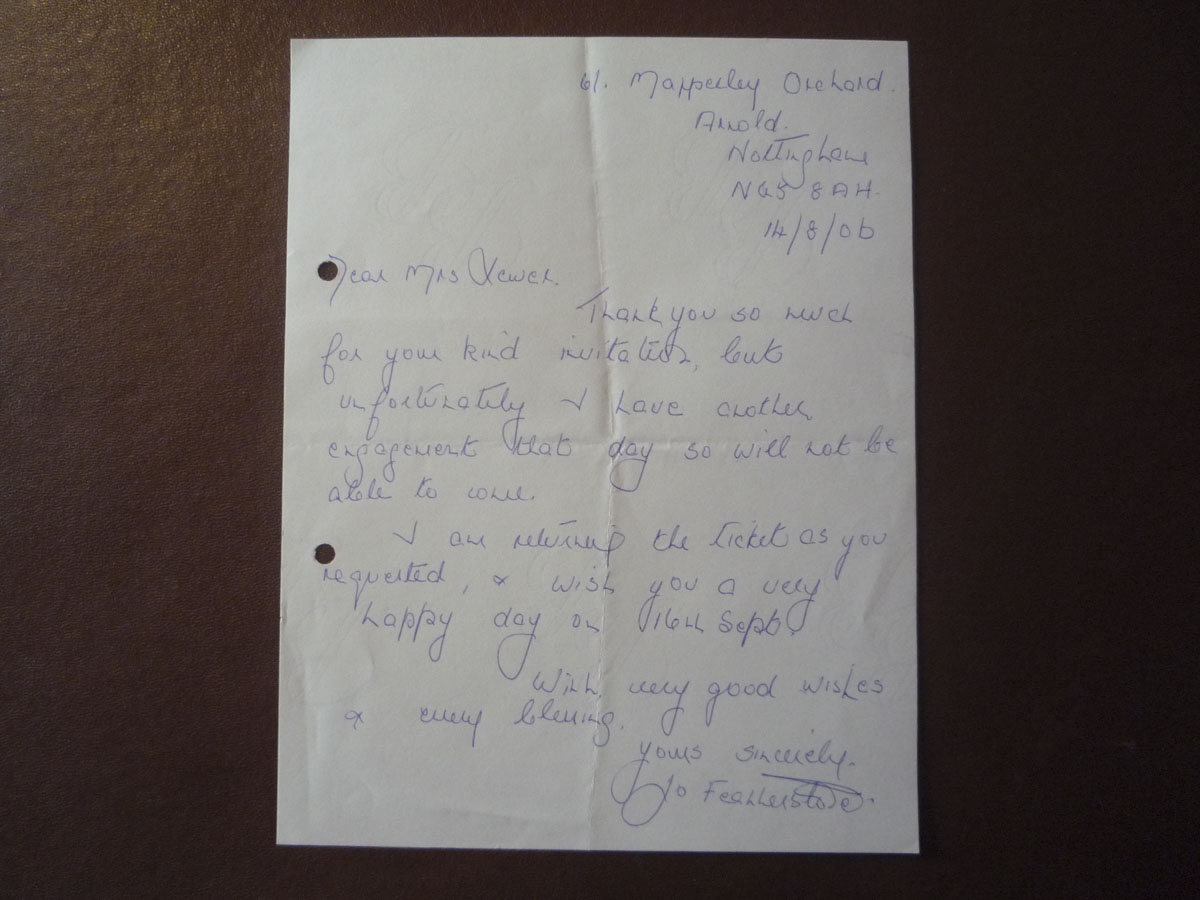 61. Mapperley Orchard.
Arnold.
Nottingham
NG5 8AH.
14/8/06
Dear Mrs
Thank you so much
for your kind invitation, but
unfortunately I have another
engagement that day so will not be
able to come.
I am returning the ticket as you
requested, & wish you a very
happy day on 16th Sept.
With very good wishes
& every blessing.
yours sincerely.
Jo Featherstone.